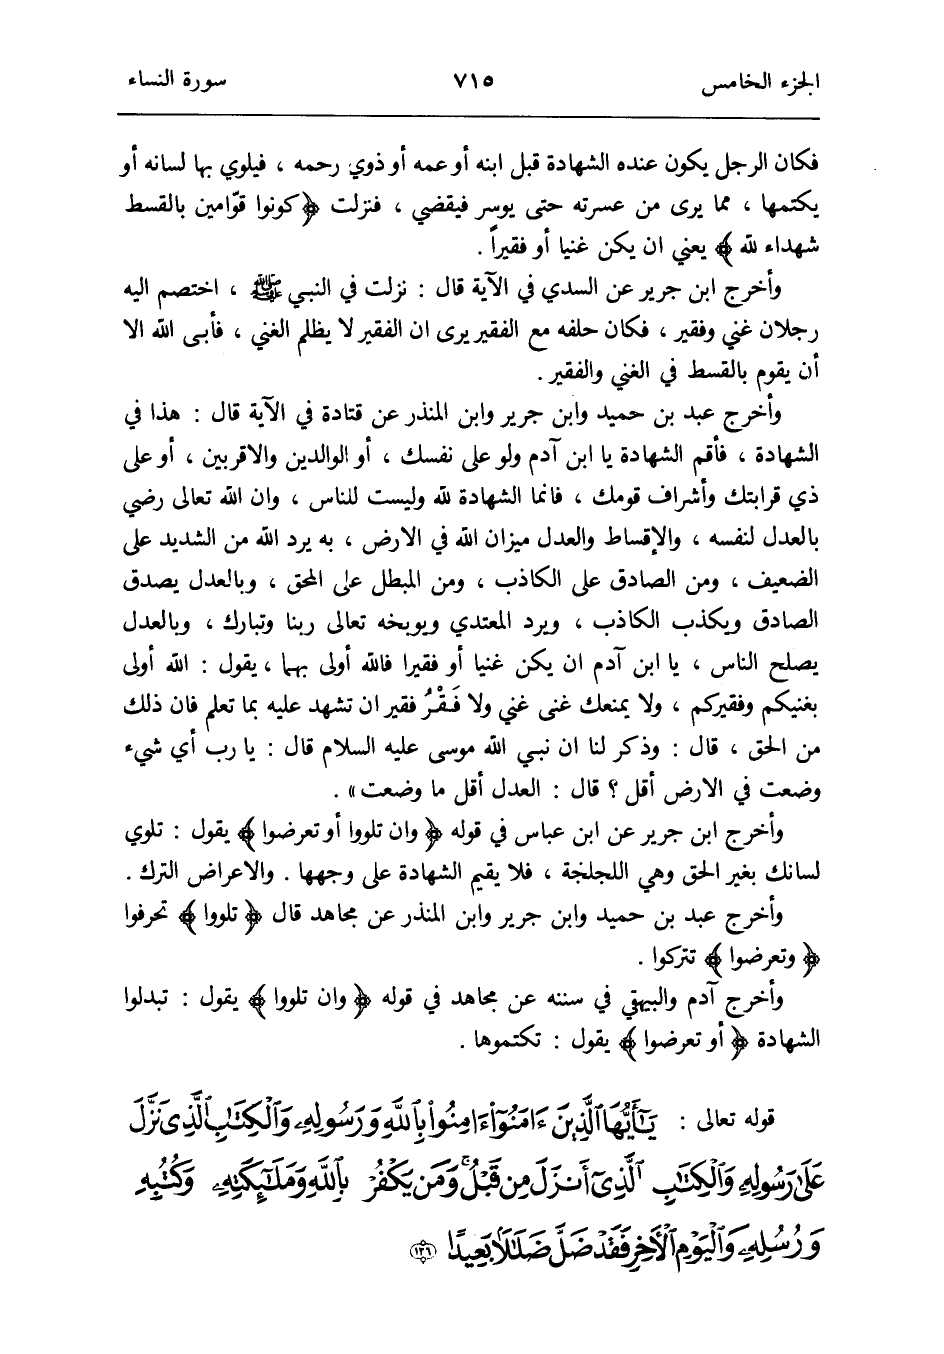 الجزء الخامس ٧١٥ سورة النساء
فكان الرجل يكون عنده الشهادة قبل ابنه أو عمه أو ذوي رحمه ، فيلوي بها لسانه أو
يكتمها ، مما يرى من عسرته حتى يوسر فيقضي ، فنزلت ﴿ كونوا قوّامين بالقسط
شهداء لله ﴾ يعني ان يكن غنيا أو فقيراً .
وأخرج ابن جرير عن السدي في الآية قال : نزلت في النبي ﷺ ، اختصم اليه
رجلان غني وفقير ، فكان حلفه مع الفقير يرى ان الفقير لا يظلم الغني ، فأبى الله الا
أن يقوم بالقسط في الغني والفقير .
وأخرج عبد بن حميد وابن جرير وابن المنذر عن قتادة في الآية قال : هذا في
الشهادة ، فأقم الشهادة يا ابن آدم ولو على نفسك ، أو الوالدين والاقربين ، أو على
ذي قرابتك وأشراف قومك ، فانما الشهادة لله وليست للناس ، وان الله تعالى رضي
بالعدل لنفسه ، والإقساط والعدل ميزان الله في الارض ، به يرد الله من الشديد على
الضعيف ، ومن الصادق على الكاذب ، ومن المبطل على المحق ، وبالعدل يصدق
الصادق ويكذب الكاذب ، ويرد المعتدي ويوبخه تعالى ربنا وتبارك ، وبالعدل
يصلح الناس ، يا ابن آدم ان يكن غنيا أو فقيرا فالله أولى بهما ، يقول : الله أولى
بغنيكم وفقيركم ، ولا يمنعك غنى غني ولا فَقْرُ فقير ان تشهد عليه بما تعلم فان ذلك
من الحق ، قال : وذكر لنا ان نبي الله موسى عليه السلام قال : يا رب أي شيء
وضعت في الارض أقل ؟ قال : العدل أقل ما وضعت» .
وأخرج ابن جرير عن ابن عباس في قوله ﴿ وان تلووا أو تعرضوا ﴾ يقول : تلوي
لسانك بغير الحق وهي اللجلجة ، فلا يقيم الشهادة على وجهها . والاعراض الترك .
وأخرج عبد بن حميد وابن جرير وابن المنذر عن مجاهد قال ﴿ تلووا ﴾ تحرفوا
﴿ وتعرضوا ﴾ تتركوا .
وأخرج آدم والبيهقي في سننه عن مجاهد في قوله ﴿ وان تلووا ﴾ يقول : تبدلوا
الشهادة ﴿ أو تعرضوا ﴾ يقول : تكتموها .
قوله تعالى : يَٰٓأَيُّهَا ٱلَّذِينَ ءَامَنُوٓا۟ ءَامِنُوا۟ بِٱللَّهِ وَرَسُولِهِۦ وَٱلْكِتَٰبِ ٱلَّذِى نَزَّلَ
عَلَىٰ رَسُولِهِۦ وَٱلْكِتَٰبِ ٱلَّذِىٓ أَنزَلَ مِن قَبْلُ ۚ وَمَن يَكْفُرْ بِٱللَّهِ وَمَلَٰٓئِكَتِهِۦ وَكُتُبِهِۦ
وَرُسُلِهِۦ وَٱلْيَوْمِ ٱلْءَاخِرِ فَقَدْ ضَلَّ ضَلَٰلًۢا بَعِيدًا ﴿١٣٦﴾